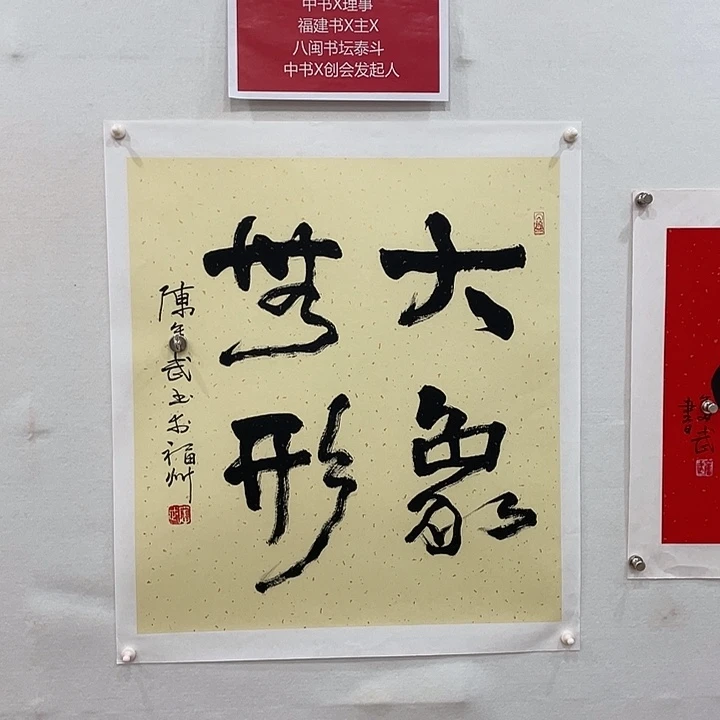 中书X理事
福建书X主X
八闽书坛泰斗
中书X创会发起人
大象
無形
陳 武书于福州
武
書